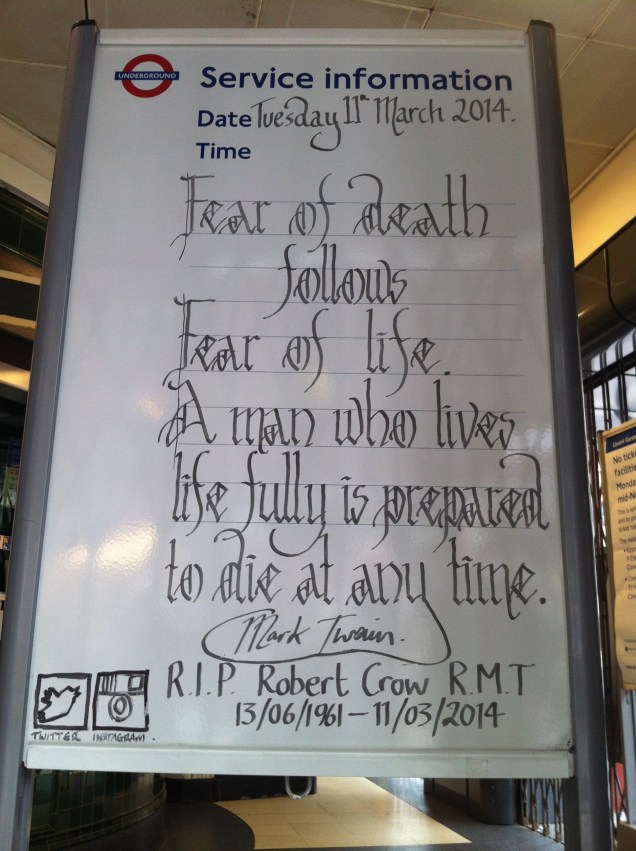 UNDERGROUND
Service information
Date Tuesday 11th March 2014.
Time
Fear of death
follows
Fear of life.
A man who lives
life fully is prepared
to die at any time.
Mark Twain.
R.I.P. Robert Crow R.M.T
13/06/1961 – 11/03/2014
TWITTER INSTAGRAM.
No ticke
facilities
Monda
mid-No